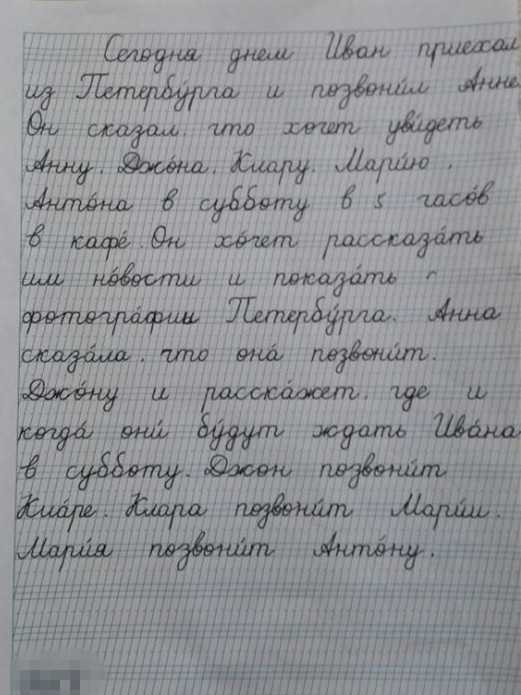 Сегодня днем Иван приехал
из Петербу́рга и позвони́л Анне
Он сказал, что хочет уви́деть
Анну, Джо́на, Клару, Мари́ю,
Анто́на в субботу в 5 часо́в
в кафе́. Он хо́чет рассказа́ть
им но́вости и показа́ть
фотогра́фии Петербу́рга. Анна
сказа́ла, что она́ позвони́т.
Джо́ну и расска́жет, где и
когда́ они́ бу́дут ждать Ива́на
в субботу. Джон позвони́т
Кла́ре. Клара позвони́т Мари́и.
Мари́я позвони́т Анто́ну.